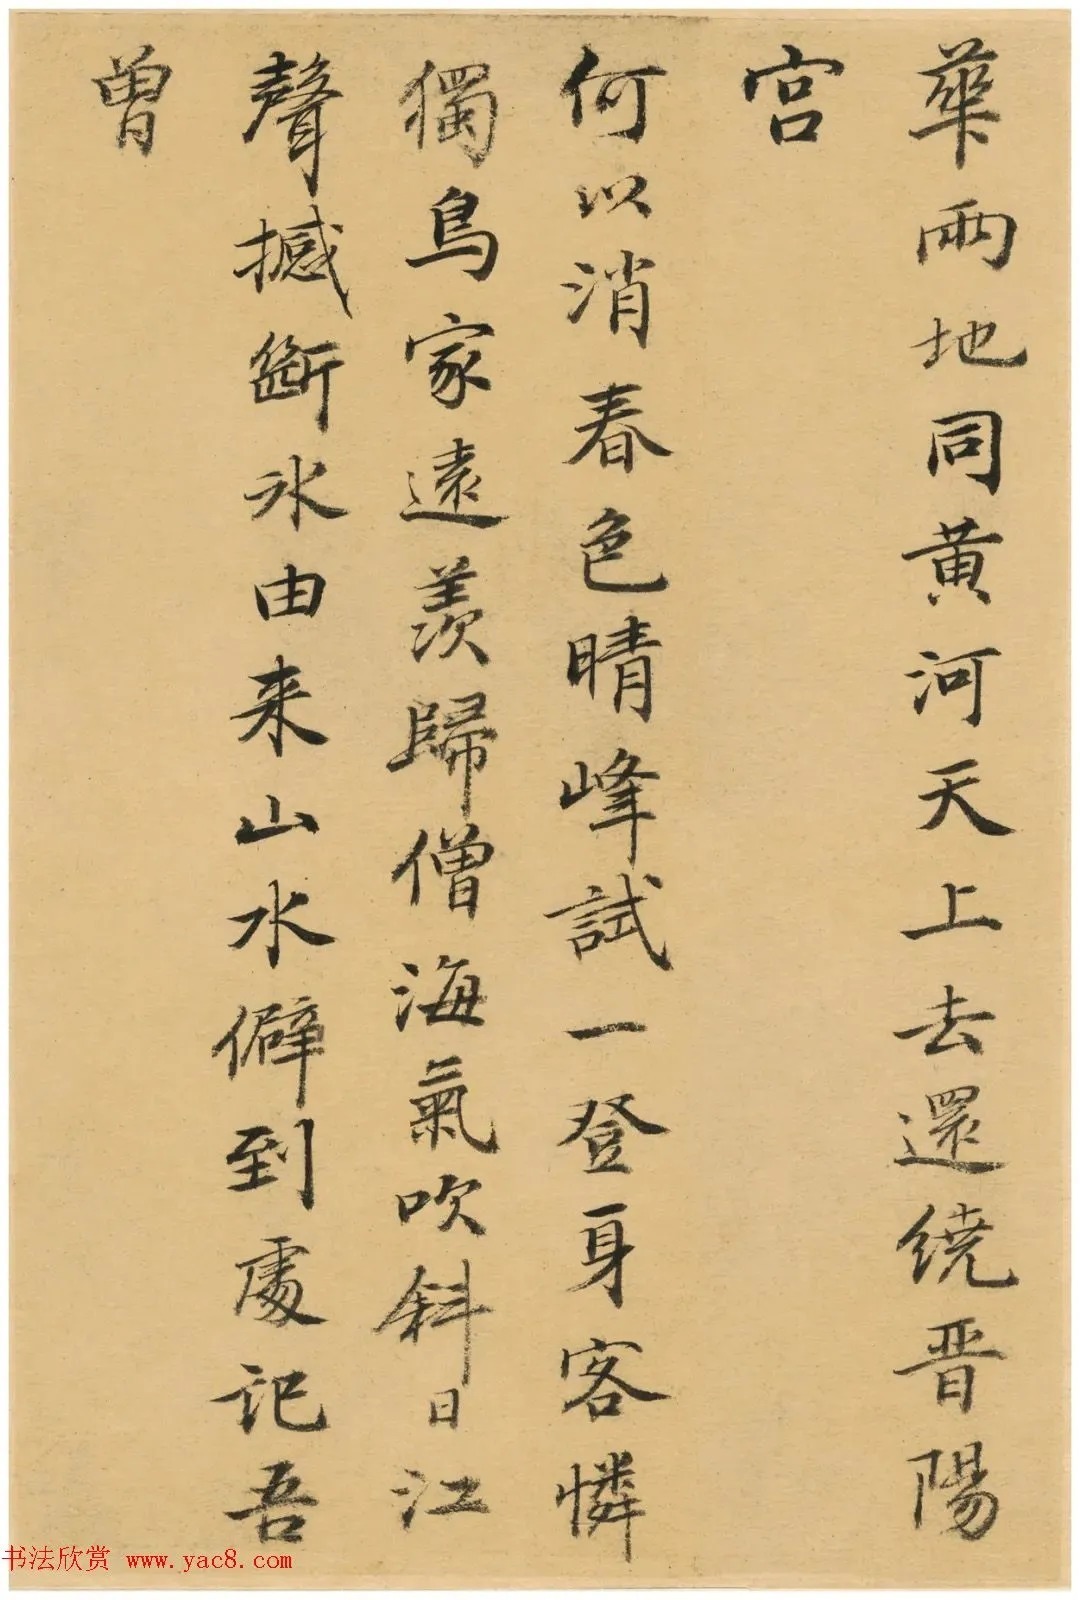 華兩地同黃河天上去還繞晋陽
宫
何以消春色晴峰試一登身客憐
獨鳥家遠羨歸僧海氣吹斜日江
聲撼斷冰由来山水僻到處记吾
曾
书法欣赏 www.yac8.com